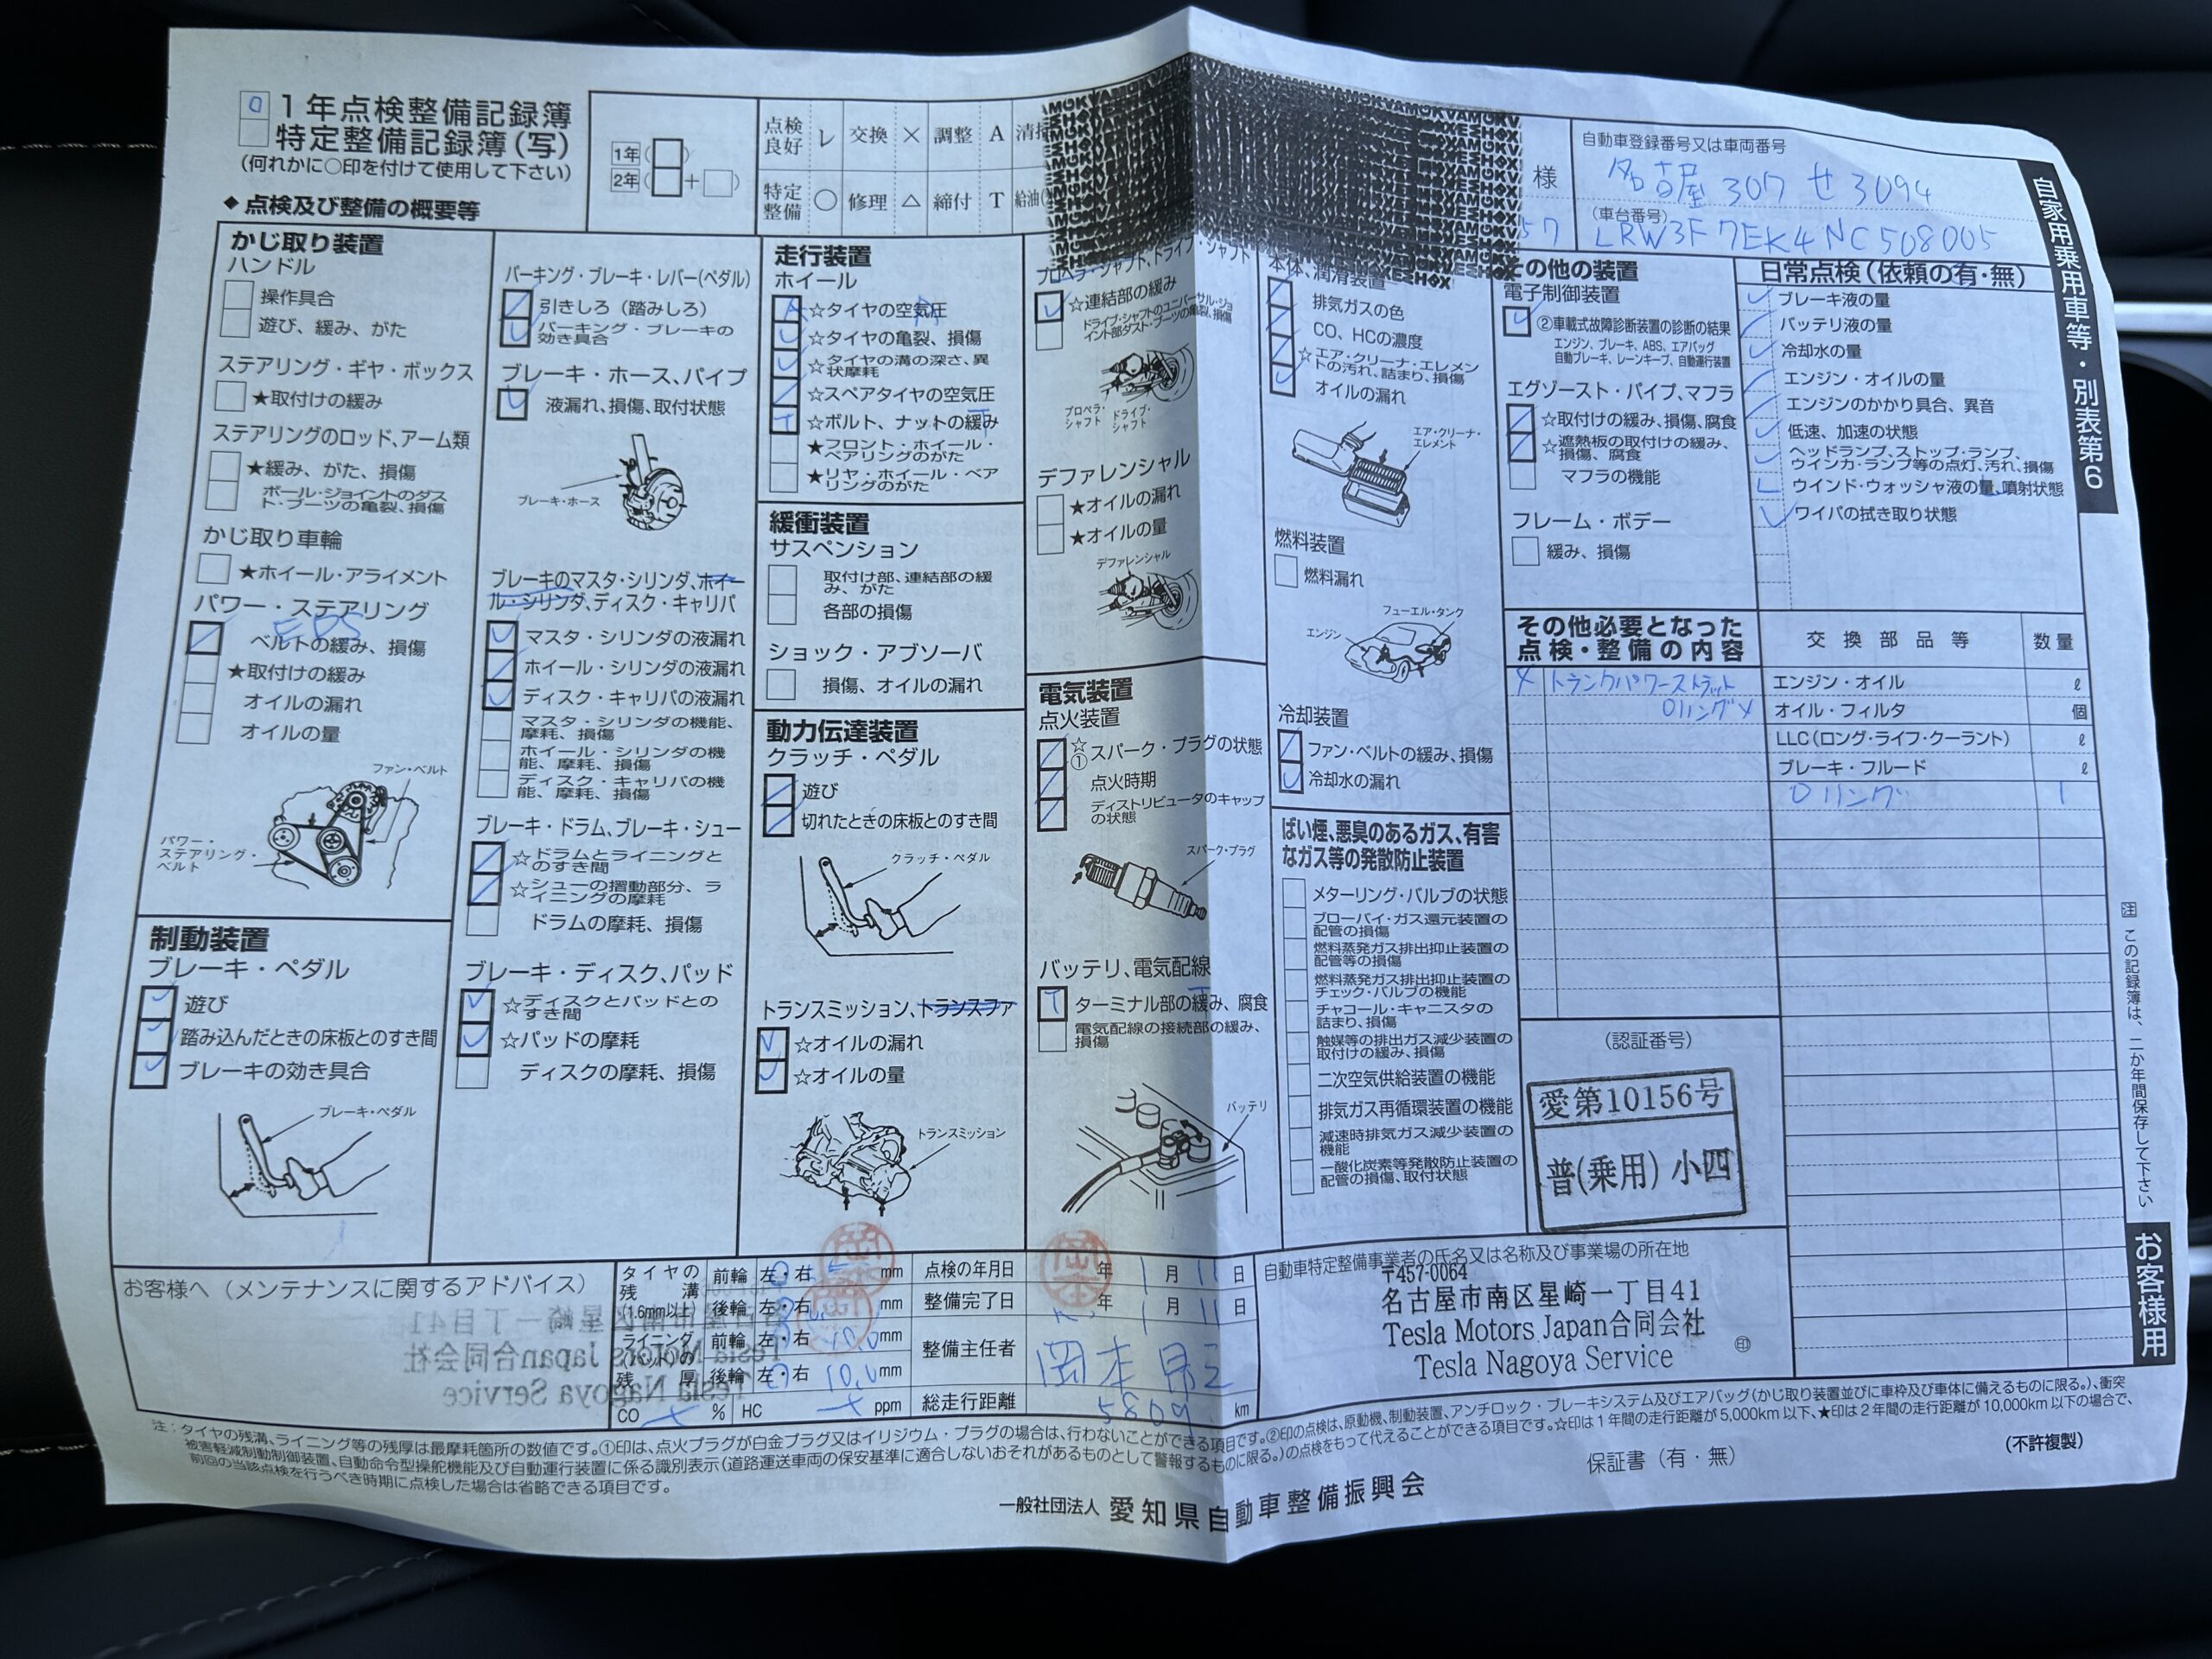 １年点検整備記録簿
特定整備記録簿(写)
(何れかに○印を付けて使用して下さい)
1年( )
2年( + )
点検良好 レ 交換 × 調整 A
特定整備 ○ 修理 △ 締付 T
様
57
自動車登録番号又は車両番号
名古屋 307 せ 3094
(車台番号)
LRW3F7EK4NC508005
自家用乗用車等・別表第6
◆ 点検及び整備の概要等
かじ取り装置
ハンドル
操作具合
遊び、緩み、がた
ステアリング・ギヤ・ボックス
★取付けの緩み
ステアリングのロッド、アーム類
★緩み、がた、損傷
ボール・ジョイントのダスト・ブーツの亀裂、損傷
かじ取り車輪
★ホイール・アライメント
パワー・ステアリング
EPS
ベルトの緩み、損傷
★取付けの緩み
オイルの漏れ
オイルの量
ファン・ベルト
パワー・
ステアリング・
ベルト
制動装置
ブレーキ・ペダル
遊び
踏み込んだときの床板とのすき間
ブレーキの効き具合
ブレーキ・ペダル
パーキング・ブレーキ・レバー(ペダル)
引きしろ（踏みしろ）
パーキング・ブレーキの効き具合
ブレーキ・ホース、パイプ
液漏れ、損傷、取付状態
ブレーキ・ホース
ブレーキのマスタ・シリンダ、ホイー
ル・シリンダ、ディスク・キャリパ
マスタ・シリンダの液漏れ
ホイール・シリンダの液漏れ
ディスク・キャリパの液漏れ
マスタ・シリンダの機能、摩耗、損傷
ホイール・シリンダの機能、摩耗、損傷
ディスク・キャリパの機能、摩耗、損傷
ブレーキ・ドラム、ブレーキ・シュー
☆ドラムとライニングとのすき間
☆シューの摺動部分、ライニングの摩耗
ドラムの摩耗、損傷
ブレーキ・ディスク、パッド
☆ディスクとパッドとのすき間
☆パッドの摩耗
ディスクの摩耗、損傷
走行装置
ホイール
☆タイヤの空気圧
☆タイヤの亀裂、損傷
☆タイヤの溝の深さ、異状摩耗
☆スペアタイヤの空気圧
☆ボルト、ナットの緩み
★フロント・ホイール・ベアリングのがた
★リヤ・ホイール・ベアリングのがた
緩衝装置
サスペンション
取付け部、連結部の緩み、がた
各部の損傷
ショック・アブソーバ
損傷、オイルの漏れ
動力伝達装置
クラッチ・ペダル
遊び
切れたときの床板とのすき間
クラッチ・ペダル
トランスミッション、トランスファ
☆オイルの漏れ
☆オイルの量
トランスミッション
プロペラ・シャフト、ドライブ・シャフト
☆連結部の緩み
ドライブ・シャフトのユニバーサル・ジョイント部ダスト・ブーツの亀裂、損傷
プロペラ・シャフト
ドライブ・シャフト
デファレンシャル
★オイルの漏れ
★オイルの量
デファレンシャル
電気装置
点火装置
☆①スパーク・プラグの状態
点火時期
ディストリビュータのキャップの状態
スパーク・プラグ
バッテリ、電気配線
ターミナル部の緩み、腐食
電気配線の接続部の緩み、損傷
バッテリ
本体、潤滑装置
排気ガスの色
CO、HCの濃度
☆エア・クリーナ・エレメントの汚れ、詰まり、損傷
オイルの漏れ
エア・クリーナ・
エレメント
燃料装置
燃料漏れ
フューエル・タンク
エンジン
冷却装置
ファン・ベルトの緩み、損傷
冷却水の漏れ
ばい煙、悪臭のあるガス、有害
なガス等の発散防止装置
メターリング・バルブの状態
ブローバイ・ガス還元装置の配管の損傷
燃料蒸発ガス排出抑止装置の配管等の損傷
燃料蒸発ガス排出抑止装置のチェック・バルブの機能
チャコール・キャニスタの詰まり、損傷
触媒等の排出ガス減少装置の取付けの緩み、損傷
二次空気供給装置の機能
排気ガス再循環装置の機能
減速時排気ガス減少装置の機能
一酸化炭素等発散防止装置の配管の損傷、取付状態
その他の装置
電子制御装置
②車載式故障診断装置の診断の結果
エンジン、ブレーキ、ABS、エアバッグ
自動ブレーキ、レーンキープ、自動運行装置
エグゾースト・パイプ、マフラ
☆取付けの緩み、損傷、腐食
☆遮熱板の取付けの緩み、損傷、腐食
マフラの機能
フレーム・ボデー
緩み、損傷
日常点検（依頼の有・無）
ブレーキ液の量
バッテリ液の量
冷却水の量
エンジン・オイルの量
エンジンのかかり具合、異音
低速、加速の状態
ヘッドランプ、ストップ・ランプ、ウインカ・ランプ等の点灯、汚れ、損傷
ウインド・ウォッシャ液の量、噴射状態
ワイパの拭き取り状態
その他必要となった
点検・整備の内容
トランクパワーストラット
Oリング ×
交換部品等 数量
エンジン・オイル ℓ
オイル・フィルタ 個
LLC(ロング・ライフ・クーラント) ℓ
ブレーキ・フルード ℓ
Oリング 1
(認証番号)
愛第10156号
普(乗用) 小四
注 この記録簿は、二か年間保存して下さい
お客様用
お客様へ（メンテナンスに関するアドバイス）
タイヤの残溝(1.6mm以上) 前輪 左・右 mm
後輪 左・右 mm
ライニング(パッド)の残厚 前輪 左・右 10.0 mm
後輪 左・右 10.0 mm
CO % HC ppm
点検の年月日 年 1月 11日
整備完了日 年 1月 11日
整備主任者
総走行距離 5809 km
自動車特定整備事業者の氏名又は名称及び事業場の所在地
〒457-0064
名古屋市南区星崎一丁目41
Tesla Motors Japan合同会社
Tesla Nagoya Service
印
注：タイヤの残溝、ライニング等の残厚は最摩耗箇所の数値です。①印は、点火プラグが白金プラグ又はイリジウム・プラグの場合は、行わないことができる項目です。②印の点検は、原動機、制動装置、アンチロック・ブレーキシステム及びエアバッグ(かじ取り装置並びに車枠及び車体に備えるものに限る。)、衝突
被害軽減制動制御装置、自動命令型操舵機能及び自動運行装置に係る識別表示(道路運送車両の保安基準に適合しないおそれがあるものとして警報するものに限る。)の点検をもって代えることができる項目です。☆印は１年間の走行距離が5,000km以下、★印は２年間の走行距離が10,000km以下の場合で、
前回の当該点検を行うべき時期に点検した場合は省略できる項目です。
保証書（有・無）
(不許複製)
一般社団法人 愛知県自動車整備振興会